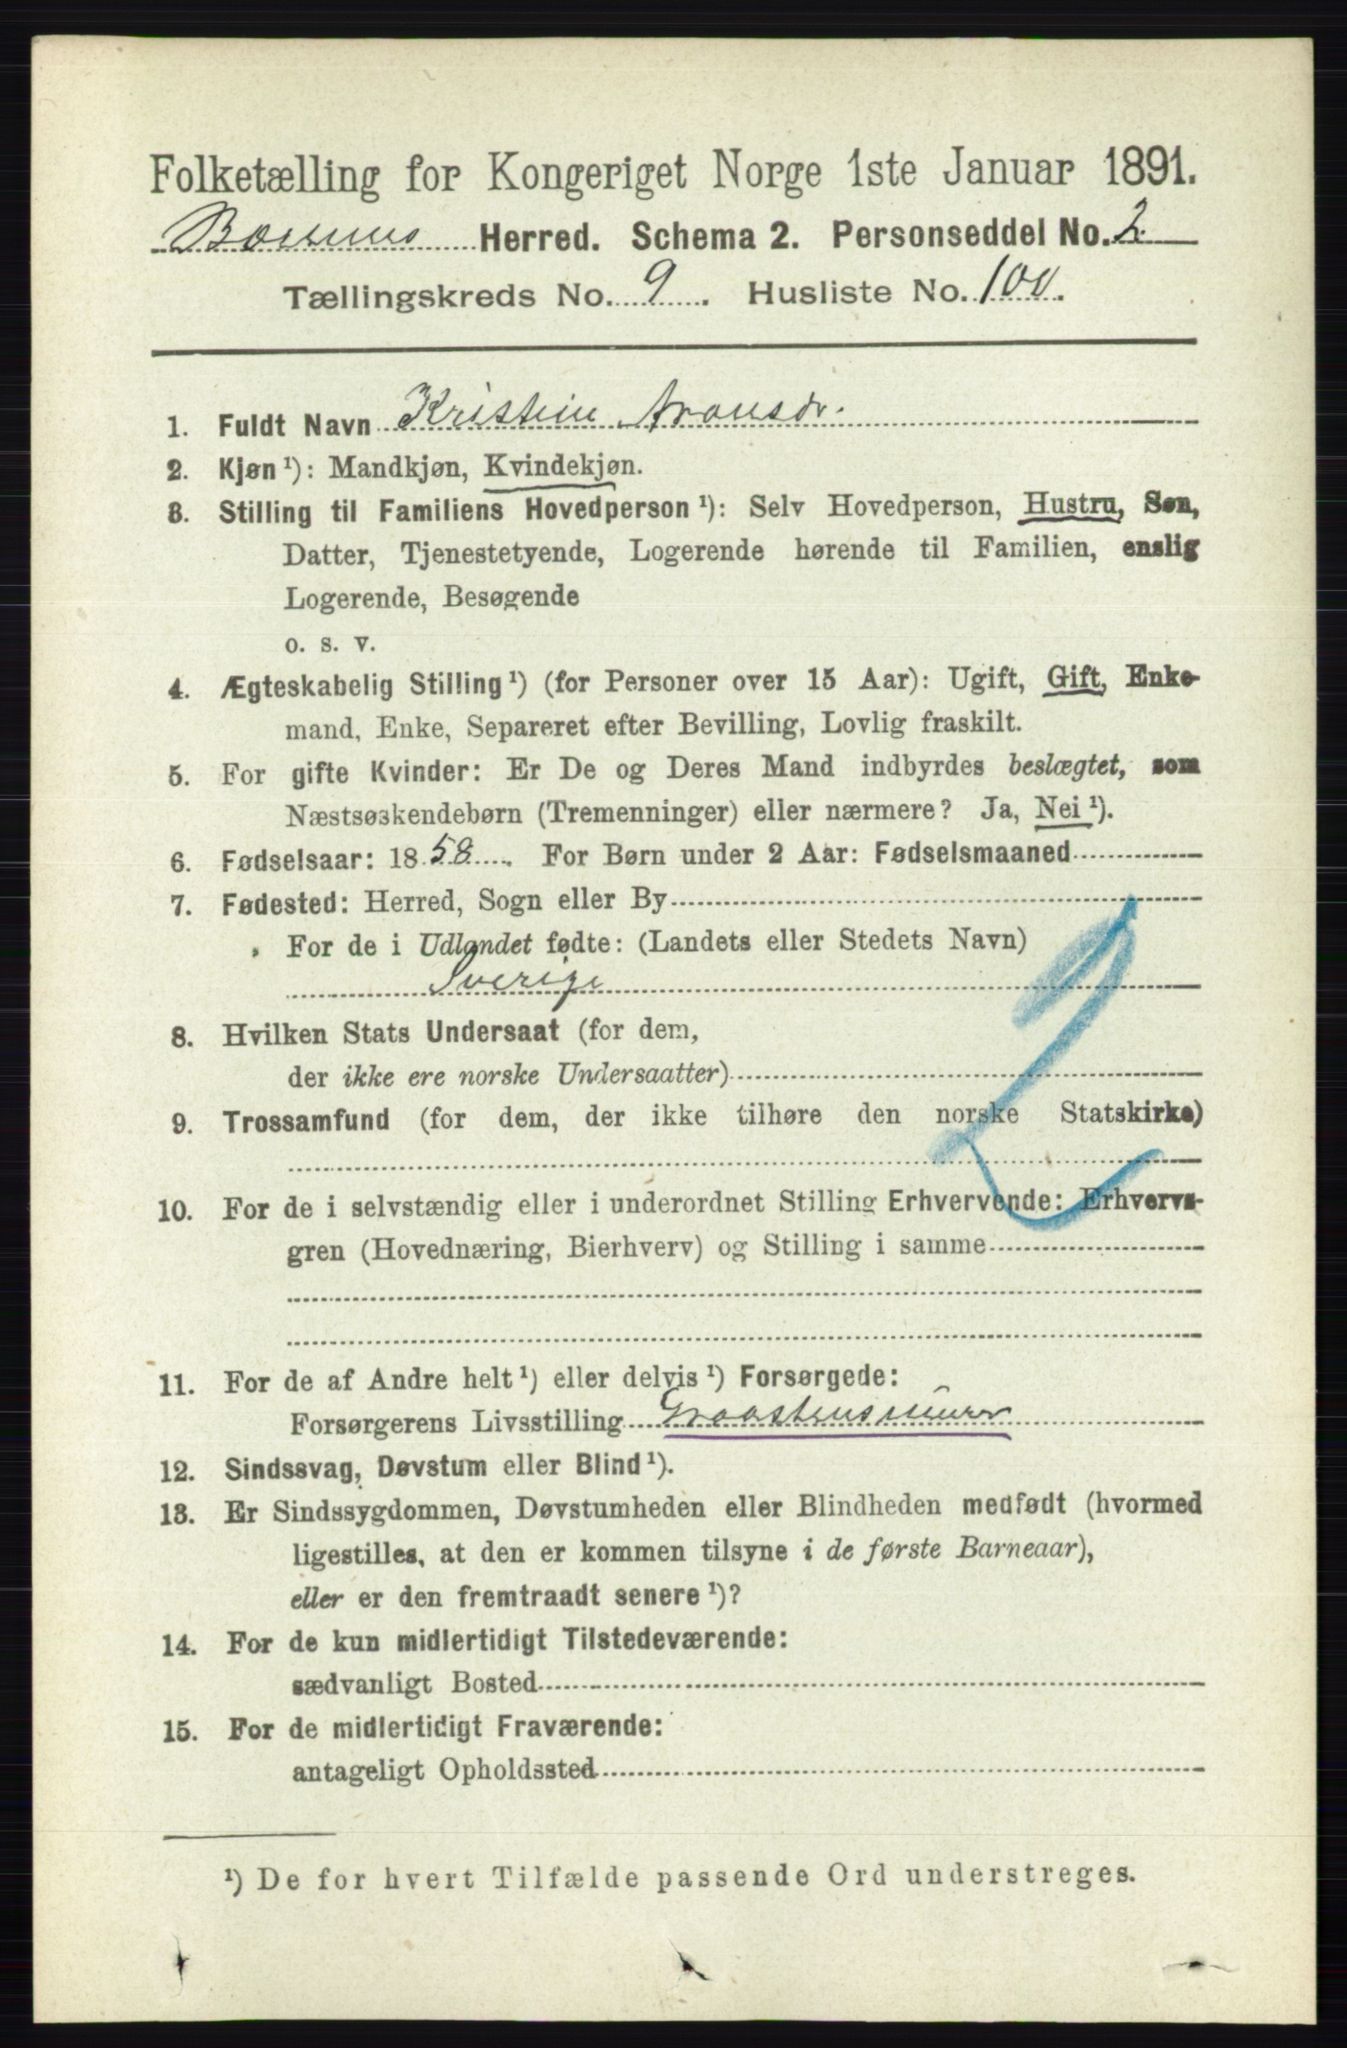 Folketælling for Kongeriget Norge 1ste Januar 1891.
Bærums Herred. Schema 2. Personseddel No. 2.
Tællingskreds No. 9. Husliste No. 100.
1. Fuldt Navn Kristine Aronsdr.
2. Kjøn ¹): Mandkjøn, Kvindekjøn.
3. Stilling til Familiens Hovedperson ¹): Selv Hovedperson, Hustru, Søn,
Datter, Tjenestetyende, Logerende hørende til Familien, enslig
Logerende, Besøgende
o. s. v.
4. Ægteskabelig Stilling ¹) (for Personer over 15 Aar): Ugift, Gift, Enke-
mand, Enke, Separeret efter Bevilling, Lovlig fraskilt.
5. For gifte Kvinder: Er De og Deres Mand indbyrdes beslægtet, som
Næstsøskendebørn (Tremenninger) eller nærmere? Ja, Nei ¹).
6. Fødselsaar: 1858. For Børn under 2 Aar: Fødselsmaaned
7. Fødested: Herred, Sogn eller By
For de i Udlandet fødte: (Landets eller Stedets Navn)
Sverige
8. Hvilken Stats Undersaat (for dem,
der ikke ere norske Undersaatter)
9. Trossamfund (for dem, der ikke tilhøre den norske Statskirke)
10. For de i selvstændig eller i underordnet Stilling Erhvervende: Erhvervs-
gren (Hovednæring, Bierhverv) og Stilling i samme
11. For de af Andre helt ¹) eller delvis ¹) Forsørgede:
Forsørgerens Livsstilling Graastensmurer
12. Sindssvag, Døvstum eller Blind ¹).
13. Er Sindssygdommen, Døvstumheden eller Blindheden medfødt (hvormed
ligestilles, at den er kommen tilsyne i de første Barneaar),
eller er den fremtraadt senere ¹)?
14. For de kun midlertidigt Tilstedeværende:
sædvanligt Bosted
15. For de midlertidigt Fraværende:
antageligt Opholdssted
¹) De for hvert Tilfælde passende Ord understreges.